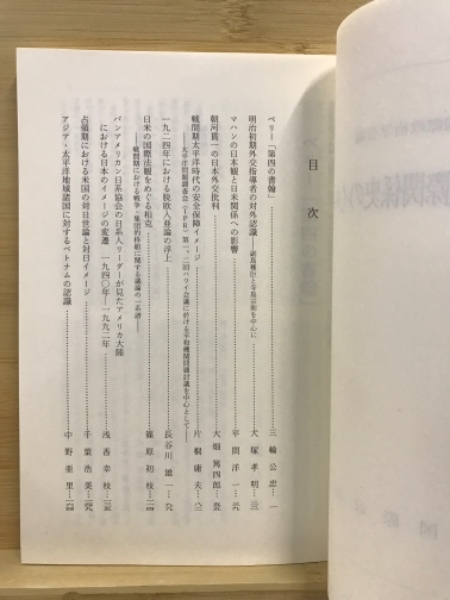 目次
ペリー「第四の書翰」……三輪公忠…一
明治初期外交指導者の対外認識――副島種臣と寺島宗則を中心に……犬塚孝明…
マハンの日本観と日米関係への影響……平間洋一…
朝河貫一の日本外交批判……大畑篤四郎…
戦間期太平洋時代の安全保障イメージ……片桐庸夫…
――太平洋問題調査会(IPR)第一、二回ハワイ会議に於ける平和機関問題討議を中心として――
一九二四年における脱欧入亜論の浮上……長谷川雄一…
日米の国際法観をめぐる相克……篠原初枝…
――戦間期における戦争・集団的枠組に関する議論の一系譜――
パンアメリカン日系協会の日系人リーダーが見たアメリカ大陸
における日本のイメージの変遷 一九四〇年―一九九二年……浅香幸枝…
占領期における米国の対日世論と対日イメージ……千葉浩美…
アジア・太平洋地域諸国に対するベトナムの認識……中野亜里…